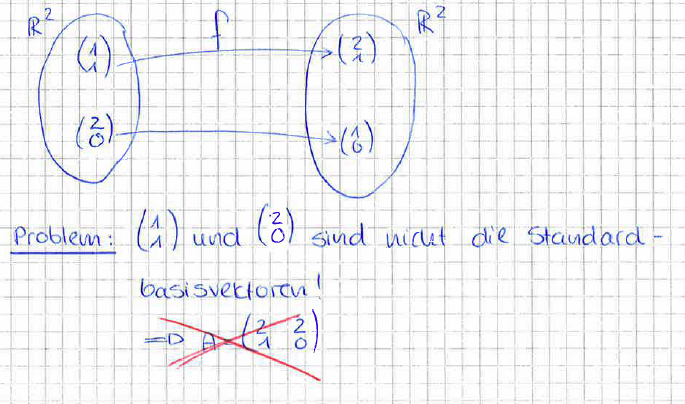 ℝ² f ℝ²
(1
1) (2
1)
(2
0) (1
0)
Problem: (1
1) und (2
0) sind nicht die Standard-
basisvektoren!
=> A = (2 2
1 0)